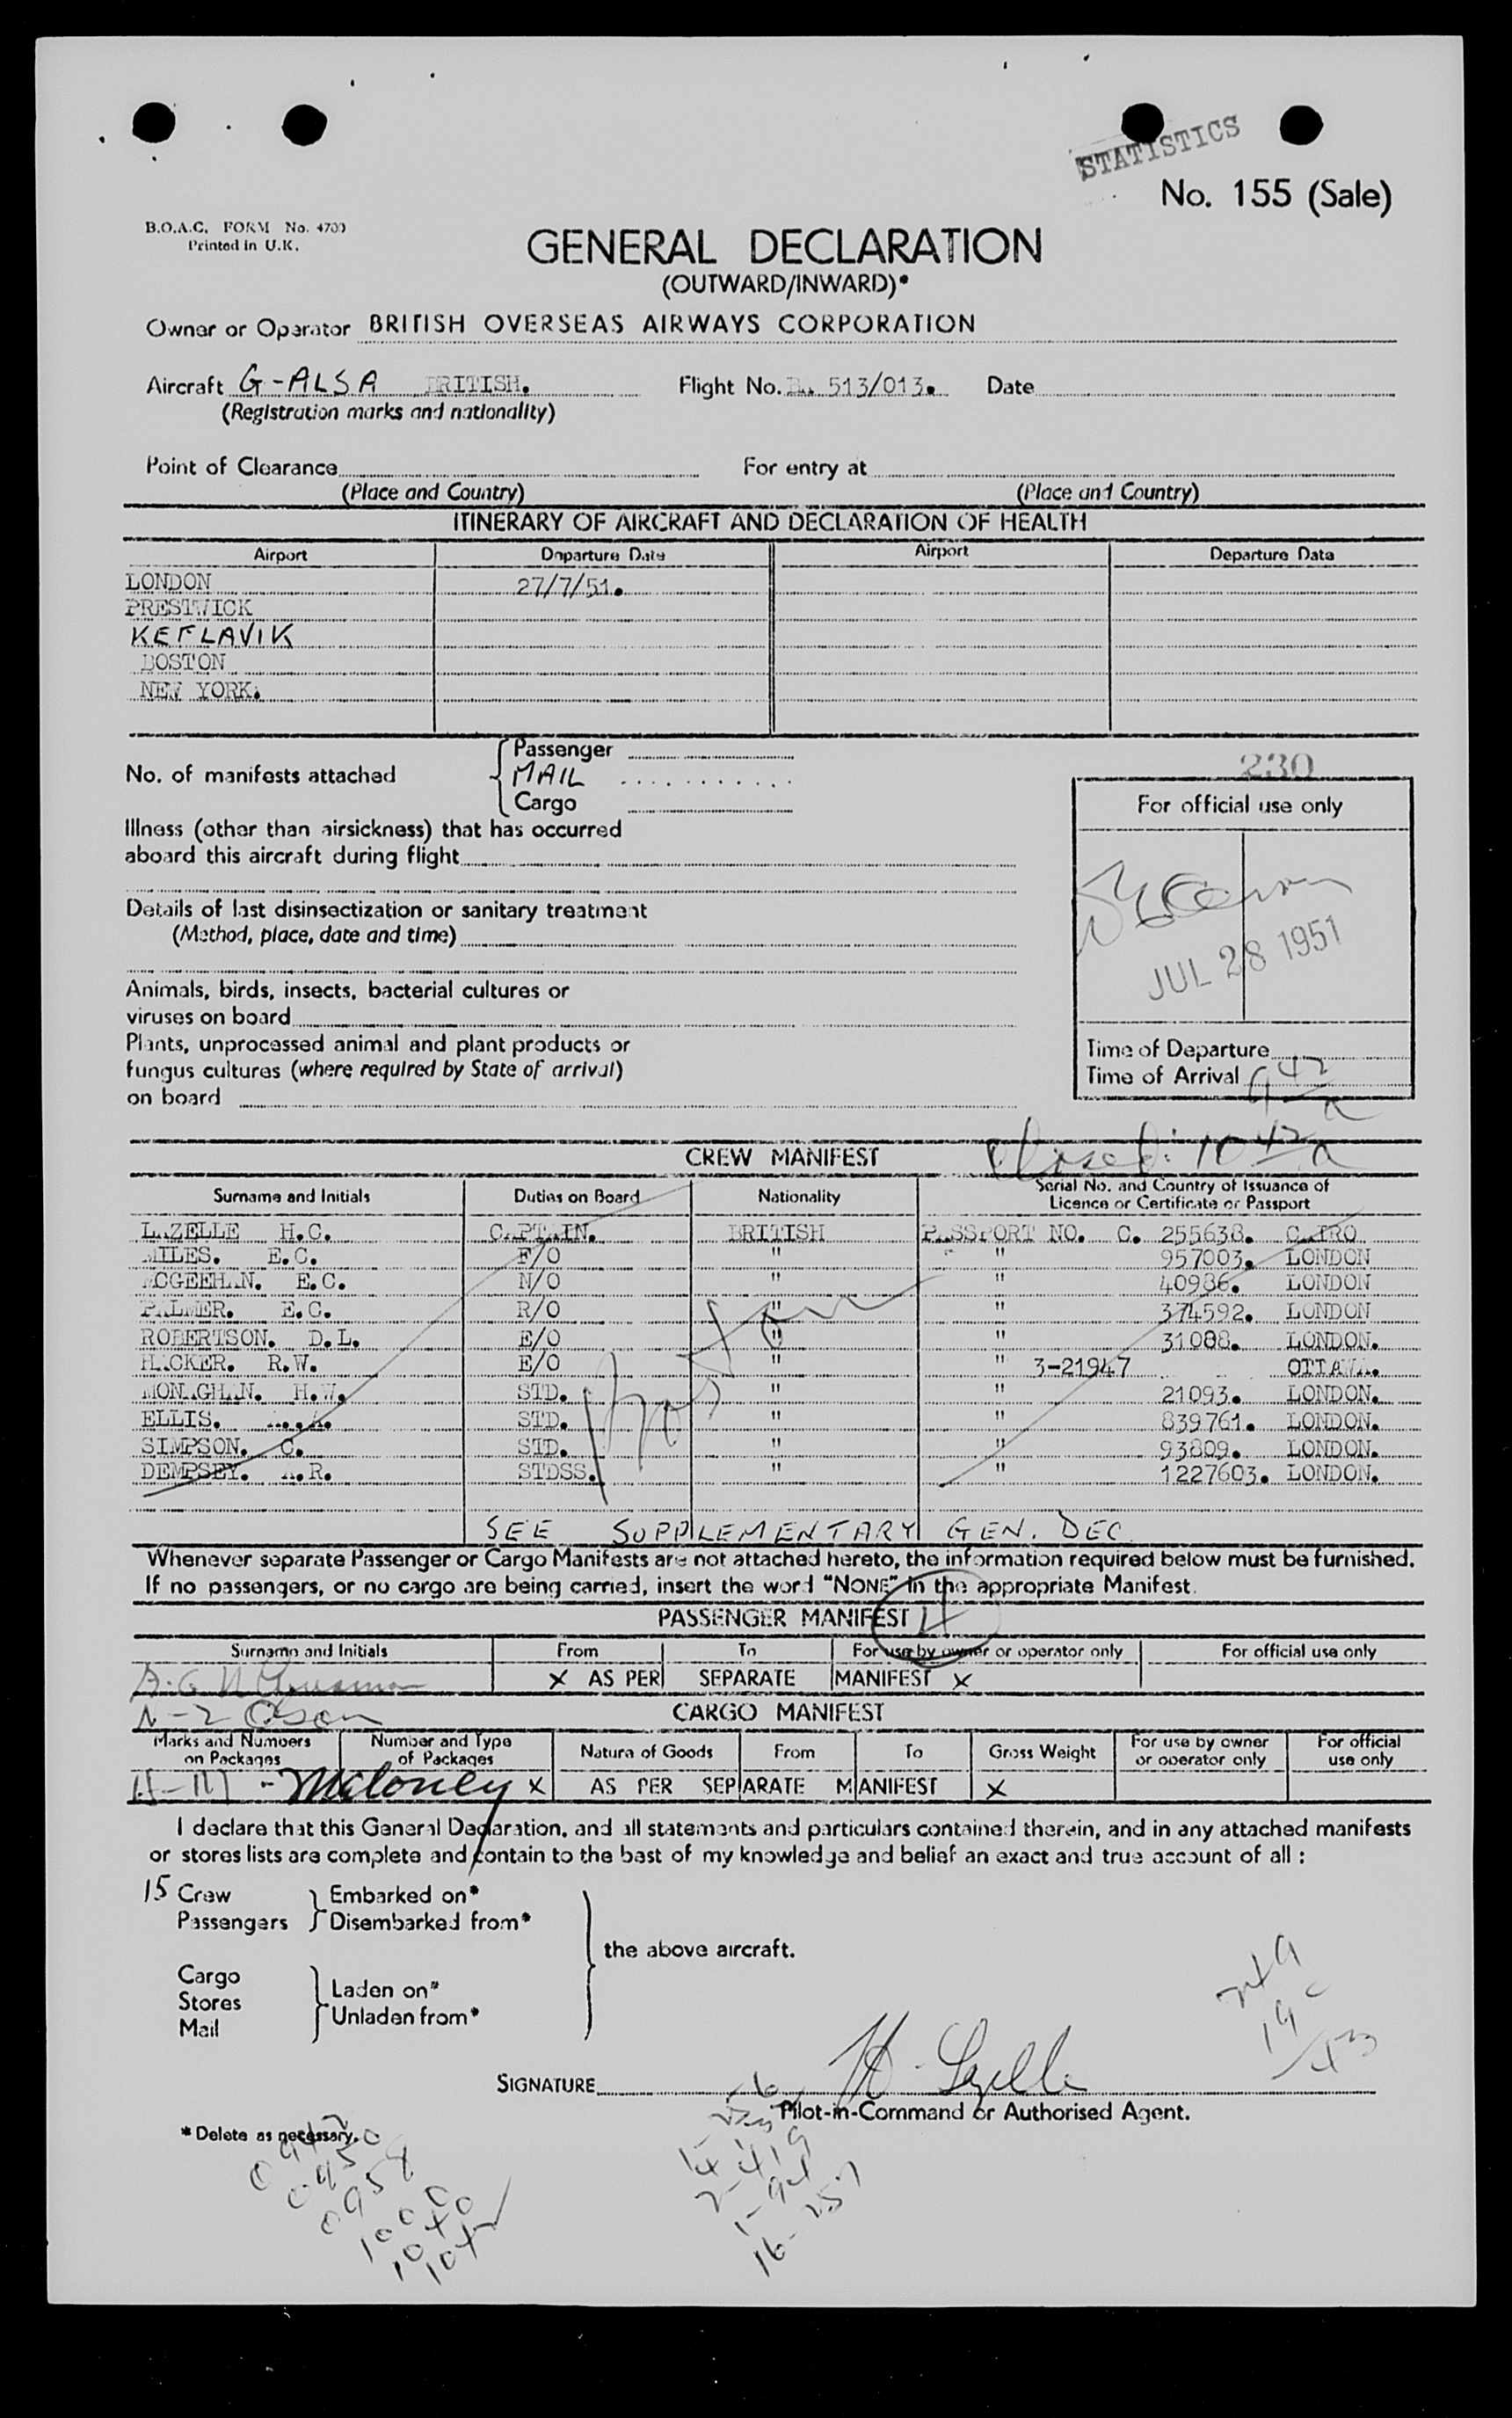 STATISTICS
No. 155 (Sale)
B.O.A.C. FORM No. 4700
Printed in U.K.
GENERAL DECLARATION
(OUTWARD/INWARD)*
Owner or Operator BRITISH OVERSEAS AIRWAYS CORPORATION
Aircraft G-ALSA BRITISH. Flight No. B. 513/013. Date
(Registration marks and nationality)
Point of Clearance For entry at
(Place and Country) (Place and Country)
ITINERARY OF AIRCRAFT AND DECLARATION OF HEALTH
Airport Departure Date Airport Departure Date
LONDON 27/7/51.
PRESTWICK
KEFLAVIK
BOSTON
NEW YORK.
No. of manifests attached
Passenger
MAIL
Cargo
230
For official use only
JUL 28 1951
Time of Departure
Time of Arrival 9 42 a
Illness (other than airsickness) that has occurred
aboard this aircraft during flight
Details of last disinsectization or sanitary treatment
(Method, place, date and time)
Animals, birds, insects, bacterial cultures or
viruses on board
Plants, unprocessed animal and plant products or
fungus cultures (where required by State of arrival)
on board
Closed: 10 42 a
CREW MANIFEST
Surname and Initials Duties on Board Nationality Serial No. and Country of Issuance of
Licence or Certificate or Passport
LAZELLE H.C. CAPTAIN. BRITISH PASSPORT NO. C. 255638. CAIRO
MILES. E.C. F/O " " 957003. LONDON
MCGEEHAN. E.C. N/O " " 40986. LONDON
PALMER. E.C. R/O " " 374592. LONDON
ROBERTSON. D.L. E/O " " 31088. LONDON.
HACKER. R.W. E/O " " 3-21947 OTTAWA.
MONAGHAN. H.W. STD. " " 21093. LONDON.
ELLIS. A. STD. " " 839761. LONDON.
SIMPSON. C. STD. " " 93809. LONDON.
DEMPSEY. A.R. STDSS. " " 1227603. LONDON.
Boston
SEE SUPPLEMENTARY GEN. DEC
Whenever separate Passenger or Cargo Manifests are not attached hereto, the information required below must be furnished.
If no passengers, or no cargo are being carried, insert the word "NONE" in the appropriate Manifest.
PASSENGER MANIFEST 4
Surname and Initials From To For use by owner or operator only For official use only
X AS PER SEPARATE MANIFEST X
CARGO MANIFEST
Marks and Numbers on Packages Number and Type of Packages Nature of Goods From To Gross Weight For use by owner or operator only For official use only
Maloney X AS PER SEPARATE MANIFEST X
I declare that this General Declaration, and all statements and particulars contained therein, and in any attached manifests
or stores lists are complete and contain to the best of my knowledge and belief an exact and true account of all :
15 Crew Embarked on*
Passengers Disembarked from*
the above aircraft.
Cargo
Stores
Mail
Laden on*
Unladen from*
SIGNATURE H. Lazelle
Pilot-in-Command or Authorised Agent.
* Delete as necessary.
0942
0950
0954
1000
1040
1042